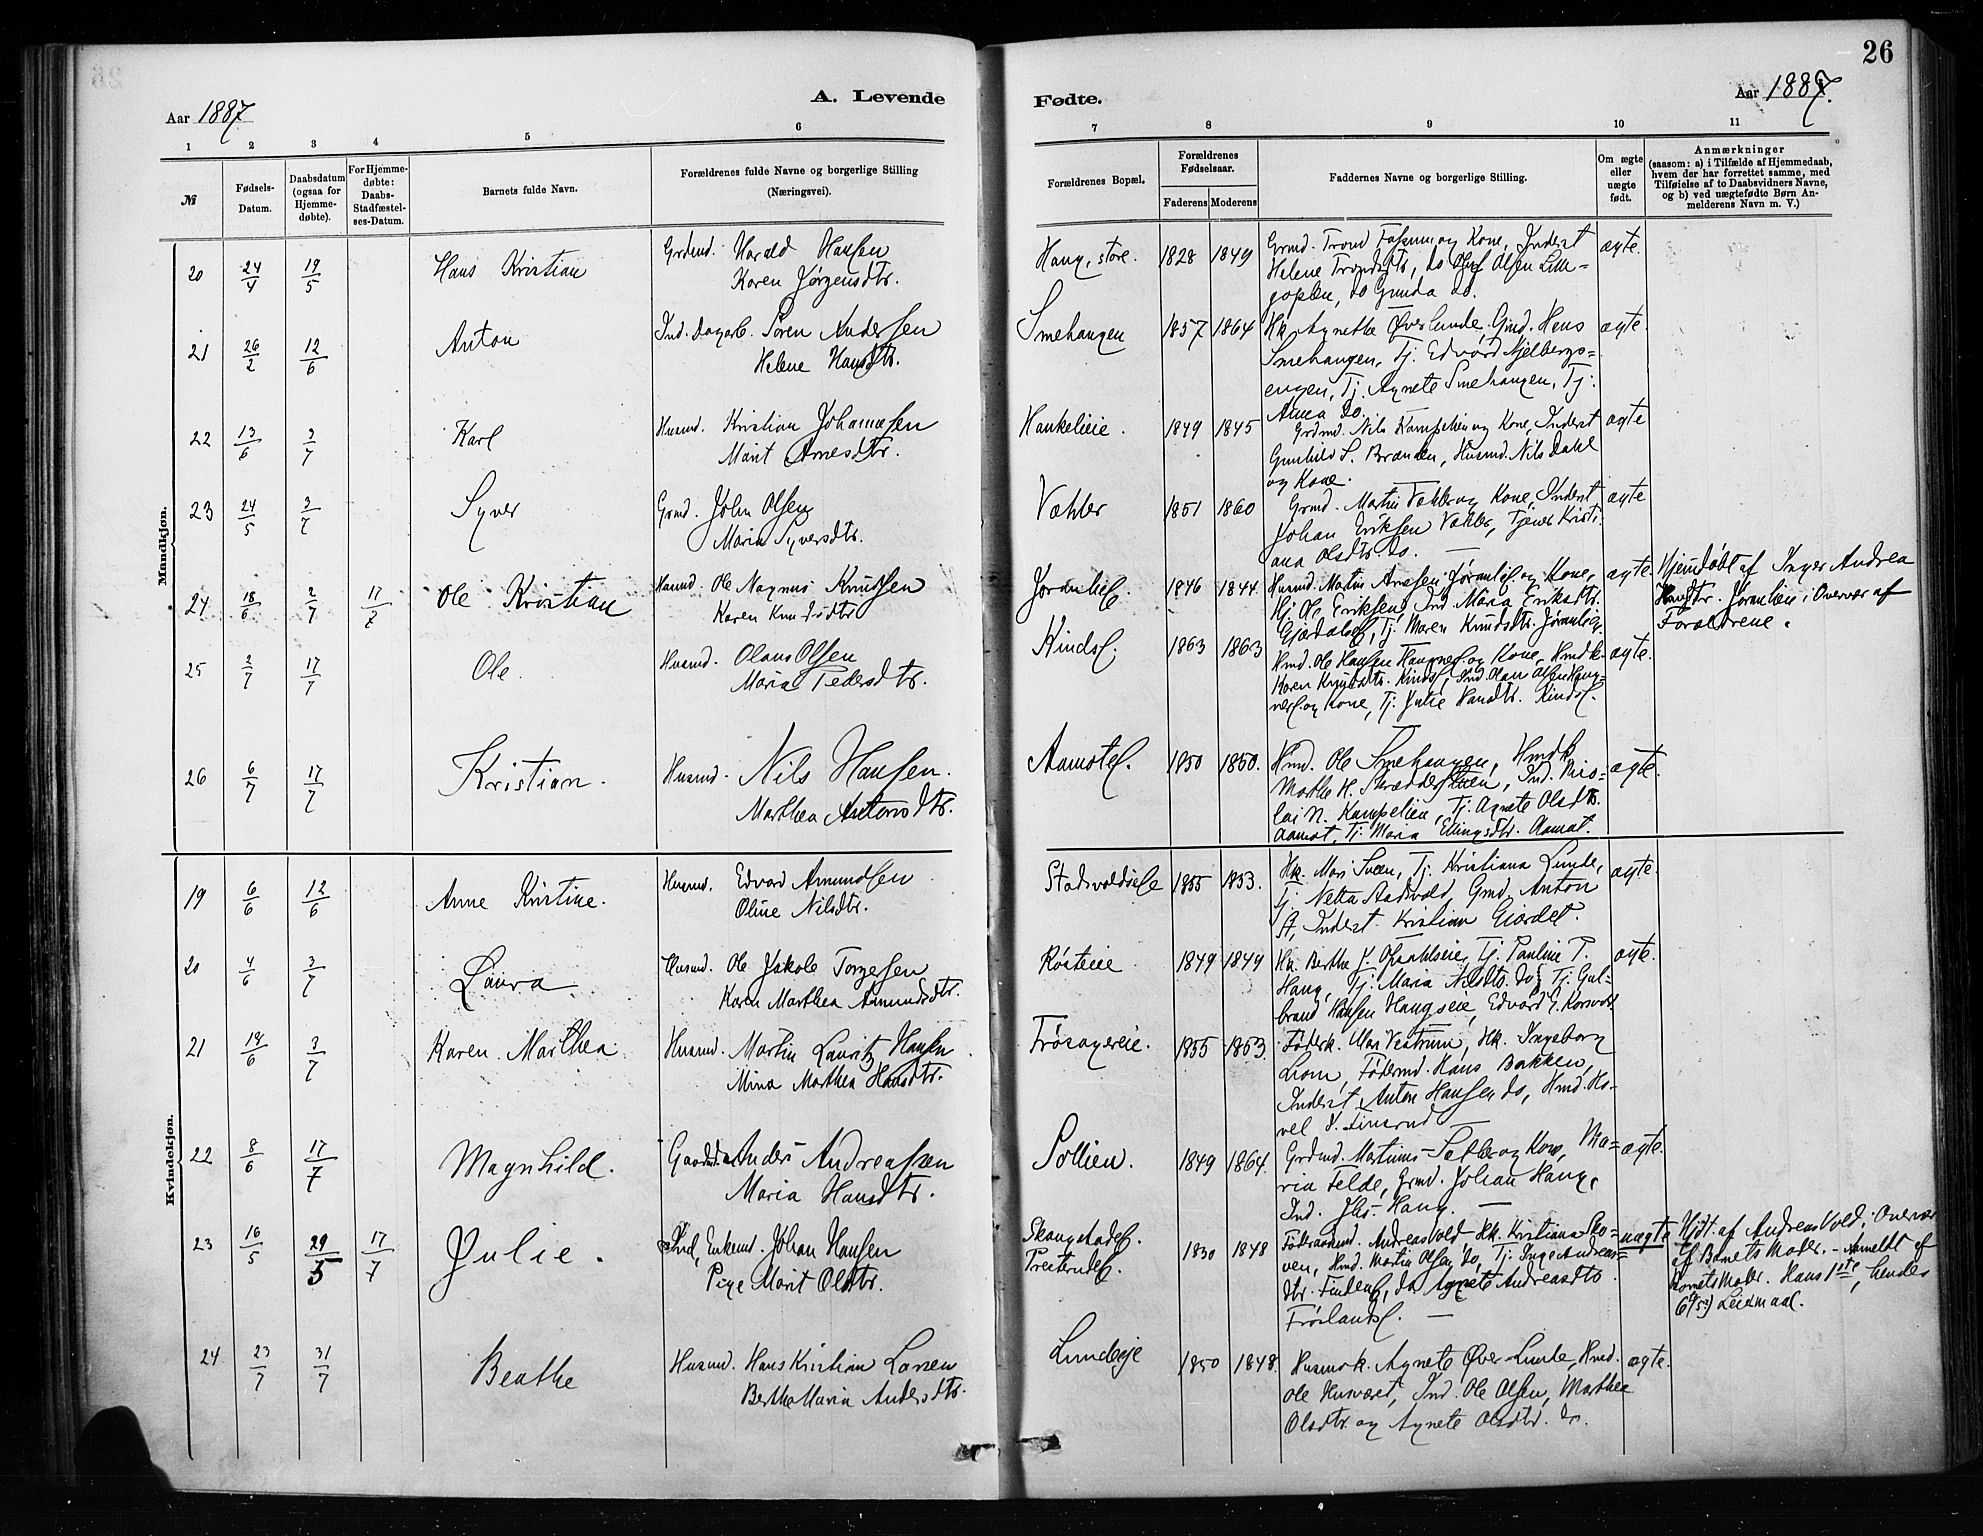 26
Aar 1887
A. Levende
Fødte.
Aar 1887.
1 2 3 4 5 6 7 8 9 10 11
№
Fødsels-
Datum.
Daabsdatum
(ogsaa for
Hjemme-
døbte).
For Hjemme-
døbte:
Daabs-
Stadfæstel-
ses-Datum.
Barnets fulde Navn.
Forældrenes fulde Navne og borgerlige Stilling
(Næringsvei).
Forældrenes Bopæl.
Forældrenes
Fødselsaar.
Faderens Moderens
Faddernes Navne og borgerlige Stilling.
Om ægte
eller
uægte
født.
Anmærkninger
(saasom: a) i Tilfælde af Hjemmedaab,
hvem der har forrettet samme, med
Tilføielse af to Daabsvidners Navne,
og b) ved uægtefødte Børn An-
melderens Navn m. V.)
Mandkjøn.
20 24/4 19/5 Hans Kristian
Grdmd. Harald Hansen
Karen Jørgensdtr.
Haug, store. 1828 1849
Grmd. Trond Fossum og Kone, Inderst
Helene Trondsdtr, do Oluf Olsen Lille-
goplen, do Gunda do.
ægte.
21 26/2 12/6 Anton
Ind. Dagarb. Søren Andersen
Helene Hansdtr.
Smehaugen 1857 1864
Hk. Agnethe Øverlunde, Gmd. Hens
Smehaugen, Tj. Edvard Kjelbergs-
engen, Tj. Agnete Smehaugen, Tj.
Anna do.
ægte.
22 13/6 3/7 Karl
Husmd. Kristian Johannesen
Marit Arnesdtr.
Haukelieie. 1849 1845
Grdmd. Nils Kampelien og Kone, Inderst
Gunhild S. Brænden, Husmd. Nils Dahl
og Kone.
ægte
23 24/5 3/7 Syver
Grmd. John Olsen
Maria Syversdtr.
Væhler 1851 1860
Grmd. Martin Væhler og Kone, Inderst
Johan Eriksen Væhler, Tjener Kristi-
ana Olsdtr. do. —
ægte
24 18/6 2/7 17/7 Ole Kristian
Husmd. Ole Magnus Knudsen
Karen Knudsdtr.
Jøranlie. 1846 1844
Husmd. Martin Arnesen Jøranlie og Kone,
Hj. Ole Eriksen, Ind. Maria Eriksdtr.
Gjædalse, Tj. Maren Knudsdtr. Jøranlie
ægte.
Hjemdøbt af Inger Andrea
Hansdtr. Jøranlien i Overvær af
Forældrene.
25 2/7 17/7 Ole.
Husmd. Olaus Olsen
Maria Pedersdtr.
Kinds. 1863 1863
Hmd. Ole Hansen Haugner og Kone, Hmdk.
Karen Knudsdtr. Kinds, Ind. Olaus Olsen Haug-
og Kone, Tj. Julie Hansdtr. Kinds.
ægte.
26 6/7 17/7 Kristian.
Husmd. Nils Hansen.
Marthea Antonsdtr.
Aamote. 1850 1850.
Hmd. Ole Smehaugen, Hmdk.
Marthe H. Skrædderstuen, Ind. Nico-
lai N. Kampelien, Tj. Agnete Olsdtr.
Aamot, Tj. Maria Ellingsdtr. Aamot.
ægte.
Kvindekjøn.
19 6/6 12/6 Anne Kristine.
Husmd. Edvard Amundsen
Oline Nilsdtr.
Stadsvoldseie 1855 1853.
Hk. Mari Sveen, Tj. Kristiana Lunde,
Tj. Netta Stadsvold, Grmd. Anton
St, Inderst Kristian Gjordet.
ægte.
20 4/6 3/7 Laura
Husmd. Ole Jakob Torgersen
Karen Marthea Amundsdtr.
Rösteie 1849 1849
Hk. Berthe J. Ofsahlseie, Tj. Pauline P.
Haug, Tj. Maria Nilsdtr. do, Tj. Gul-
brand Hansen Haugseie, Edvard E. Korsvold.
ægte.
21 19/6 3/7 Karen Marthea
Husmd. Martin Lauritz Hansen
Mina Marthea Hansdtr.
Frösagereie. 1855 1863.
Föderk. Mari Vestrum, Hk. Ingeborg
Liom, Födermd. Hans Bakken,
Inderst Anton Hansen do, Hmd. Ho-
vel S. Linsrud —
22 8/6 17/7 Magnhild.
Gaardmd. Anders Andreassen
Maria Hansdtr.
Sollien. 1849 1864.
Grdmd. Martinius Sæther og Kone, Ma-
ria Felde, Grmd. Johan Haug,
Ind. Jhs. Haug. —
ægte.
23 16/5 29/5 17/7 Julie.
Ind, Enkemd. Johan Hansen
Pige Marit Olsdtr.
Skaugstade.
Presterude. 1830 1848
Föderaadmd. Andreas Vold Hk. Kristiana Sko-
ven, Hmd. Martin Olsen do, Tj. Inge Andreas-
dtr. Findeng, do Agnete Andreasdtr.
Fröslands. —
uægte
Hjdt. af Andreas Vold i Overvær
af Barnets Moder. — Anmeldt af
Barnets Moder. Hans 1ste, hendes
6t Leiermaal.
24 23/7 31/7 Beathe
Husmd. Hans Kristian Larsen
Berthe Maria Andersdtr.
Lundeeie 1850 1848.
Husmdk. Agnete Øver Lunde, Hmd.
Ole Husværet, Ind. Ole Olsen, Marthea
Olsdtr. og Agnete Olsdtr. do.
ægte.